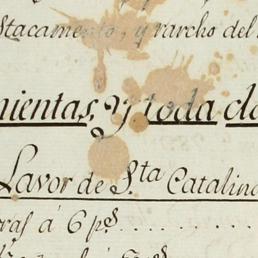 stacamento, y rancho del
mientas, y toda cla
Lavor de S.ta Catalina
ras á 6 p.s